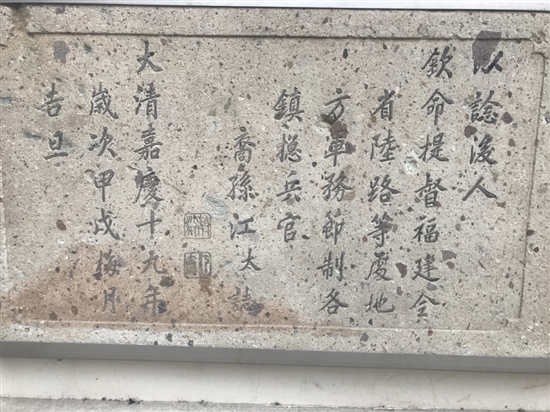 以諗後人
欽命提督福建全
省陸路等處地
方軍務節制各
鎮摠兵官
裔孫江太誌
大清嘉慶十九年
歲次甲戌梅月
吉旦